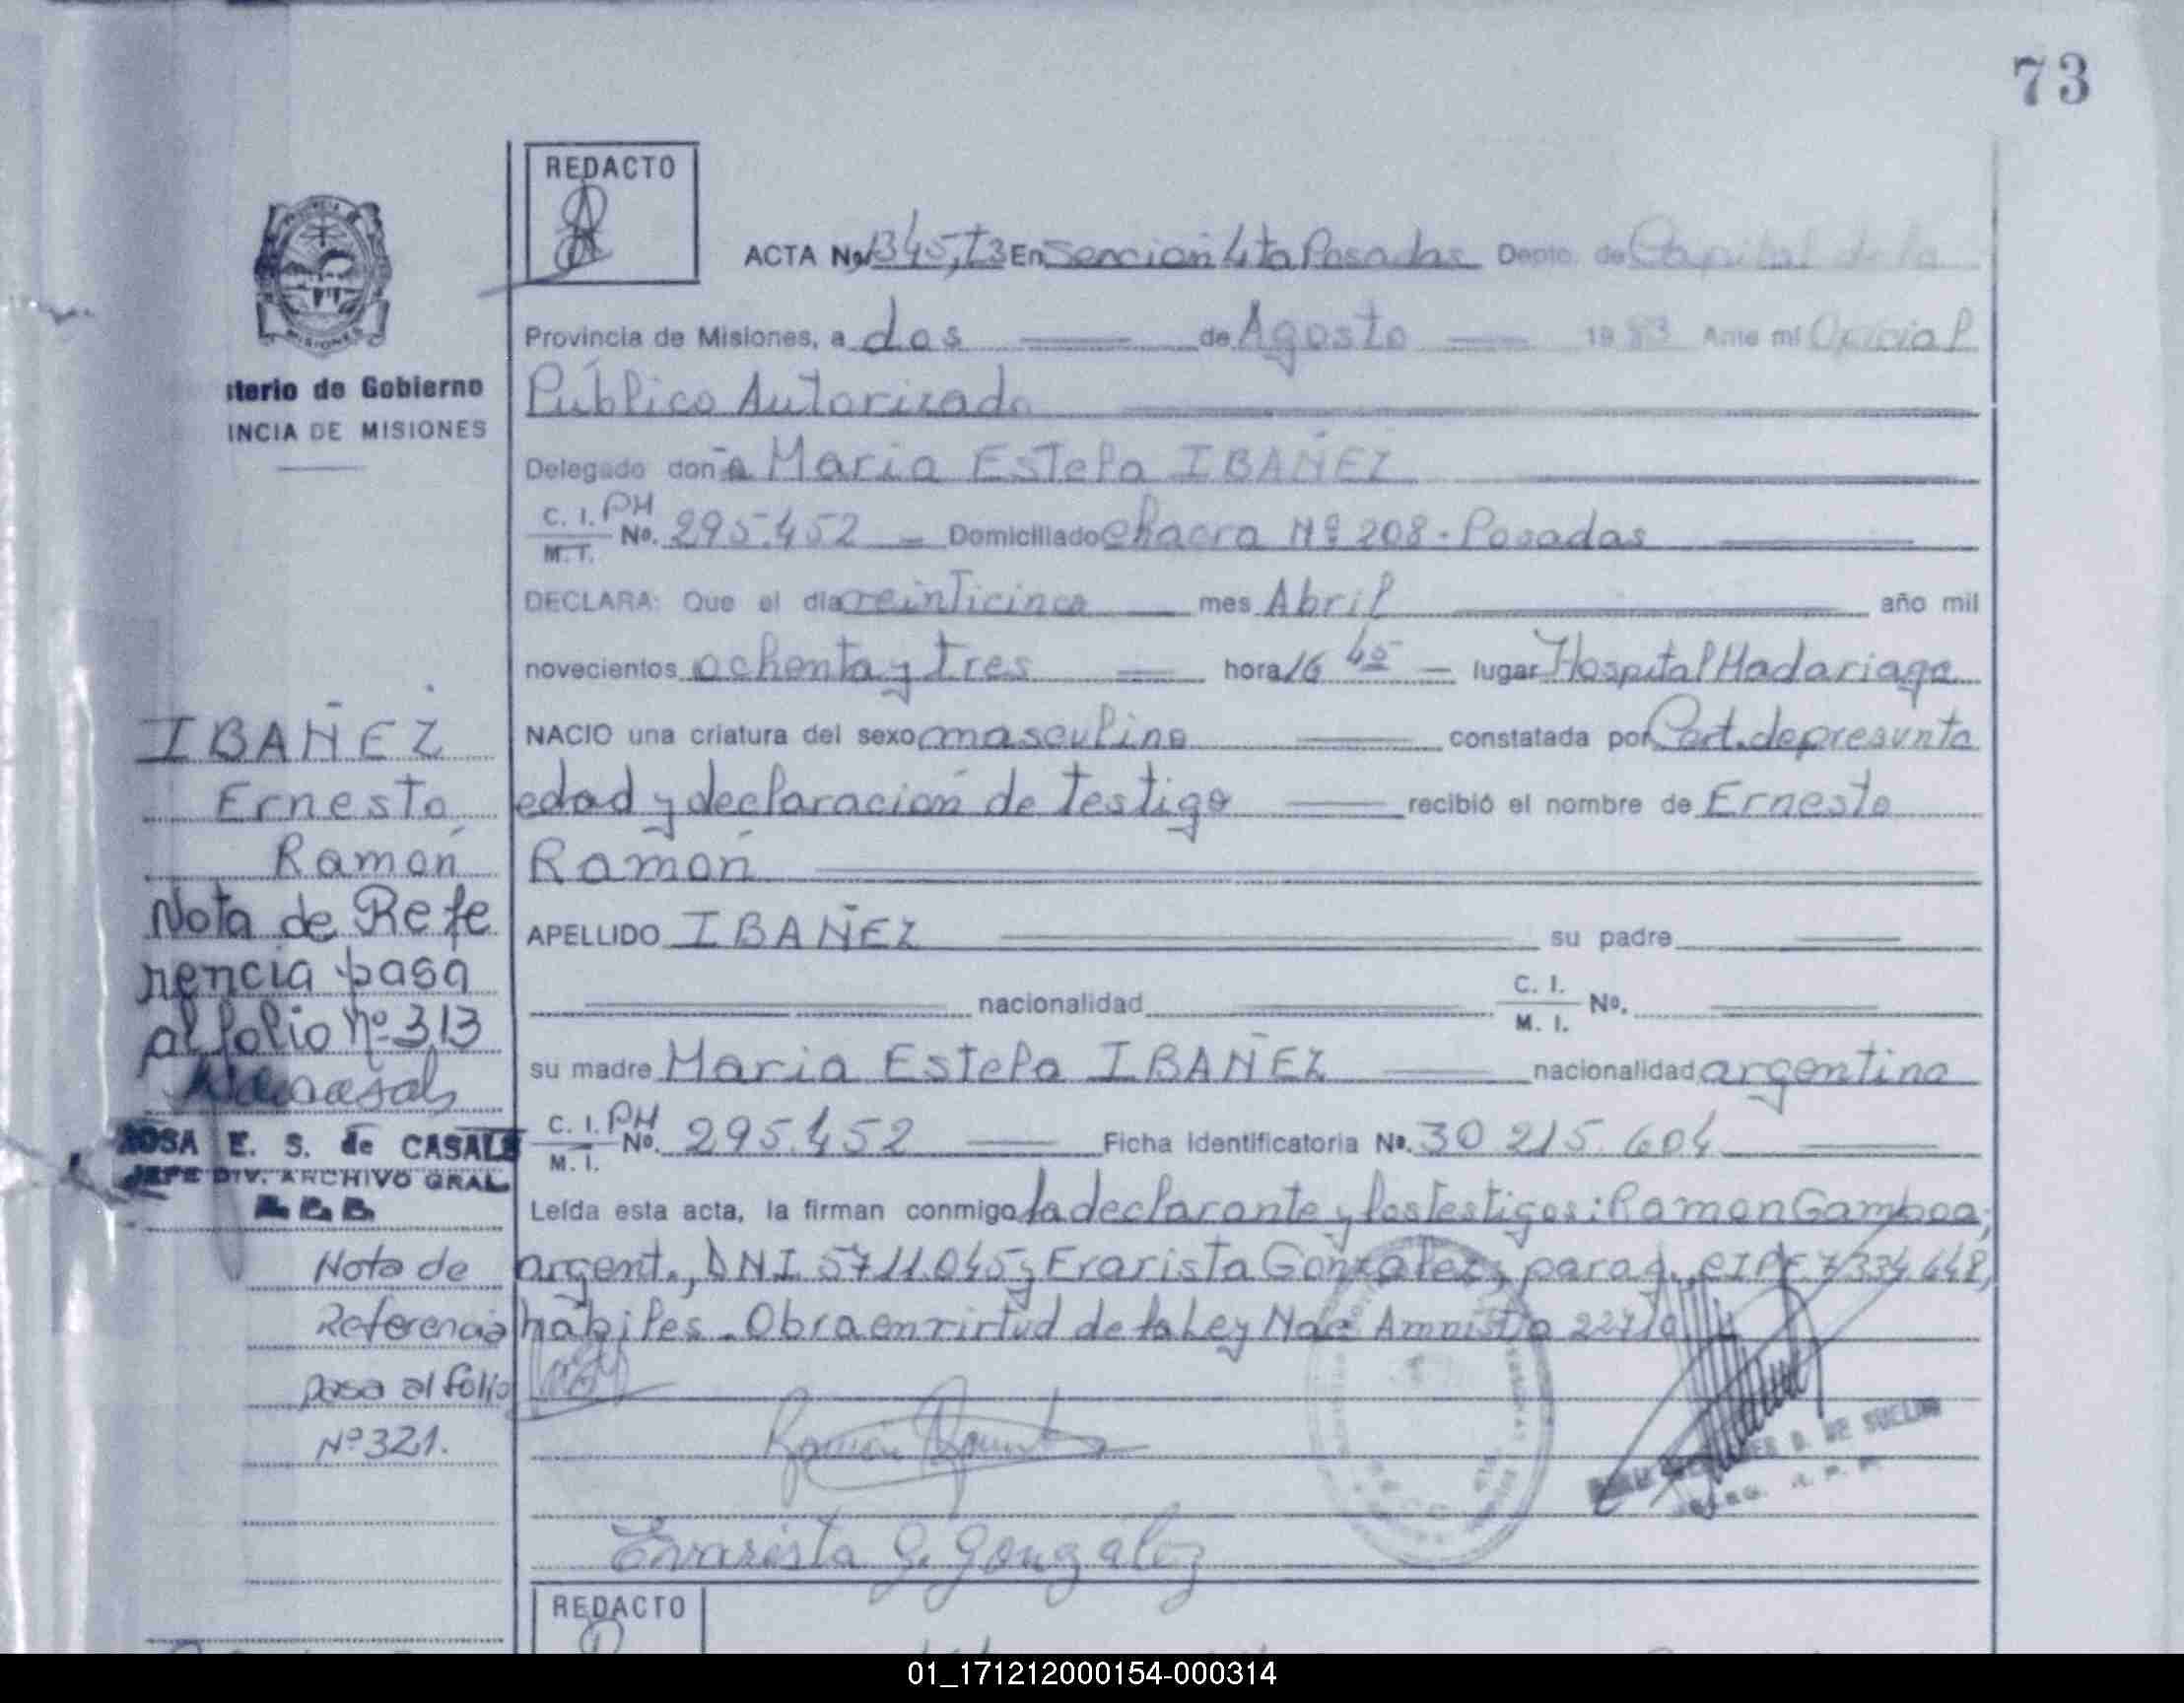 73
REDACTO
ACTA No 1345, T3 En Sección 4ta Posadas Depto. de Capital de la
Provincia de Misiones, a dos de Agosto 1983 Ante mí Oficial
Público Autorizado
sterio de Gobierno
INCIA DE MISIONES
Delegado doña Maria Estela IBAÑEZ
C. I. PM
M. I. No. 295.452 - Domiciliado Chacra Nº 208 - Posadas
DECLARA: Que el día veinticinco mes Abril año mil
novecientos ochenta y tres hora 16 45 - lugar Hospital Madariaga
NACIO una criatura del sexo masculino constatada por Cert. de presunta
edad y declaración de testigo recibió el nombre de Ernesto
Ramón
APELLIDO IBAÑEZ su padre
nacionalidad C. I. No.
M. I.
su madre Maria Estela IBAÑEZ nacionalidad argentina
C. I. PM
M. I. No. 295.452 Ficha Identificatoria No. 30.215.604
Leída esta acta, la firman conmigo la declarante y los testigos: Ramon Gamboa,
argent., DNI 5711.045; Evarista Gonzalez, parag., CIPF. 7.334.448,
hábiles. Obra en virtud de la Ley Nac Amnistia 22710
Evarista G. González
IBAÑEZ
Ernesto
Ramón
Nota de Refe
rencia pasa
al folio Nº 313
ROSA E. S. de CASALS
JEFE DIV. ARCHIVO GRAL
Nota de
Referencia
pasa al folio
Nº 321.
REDACTO
01_171212000154-000314